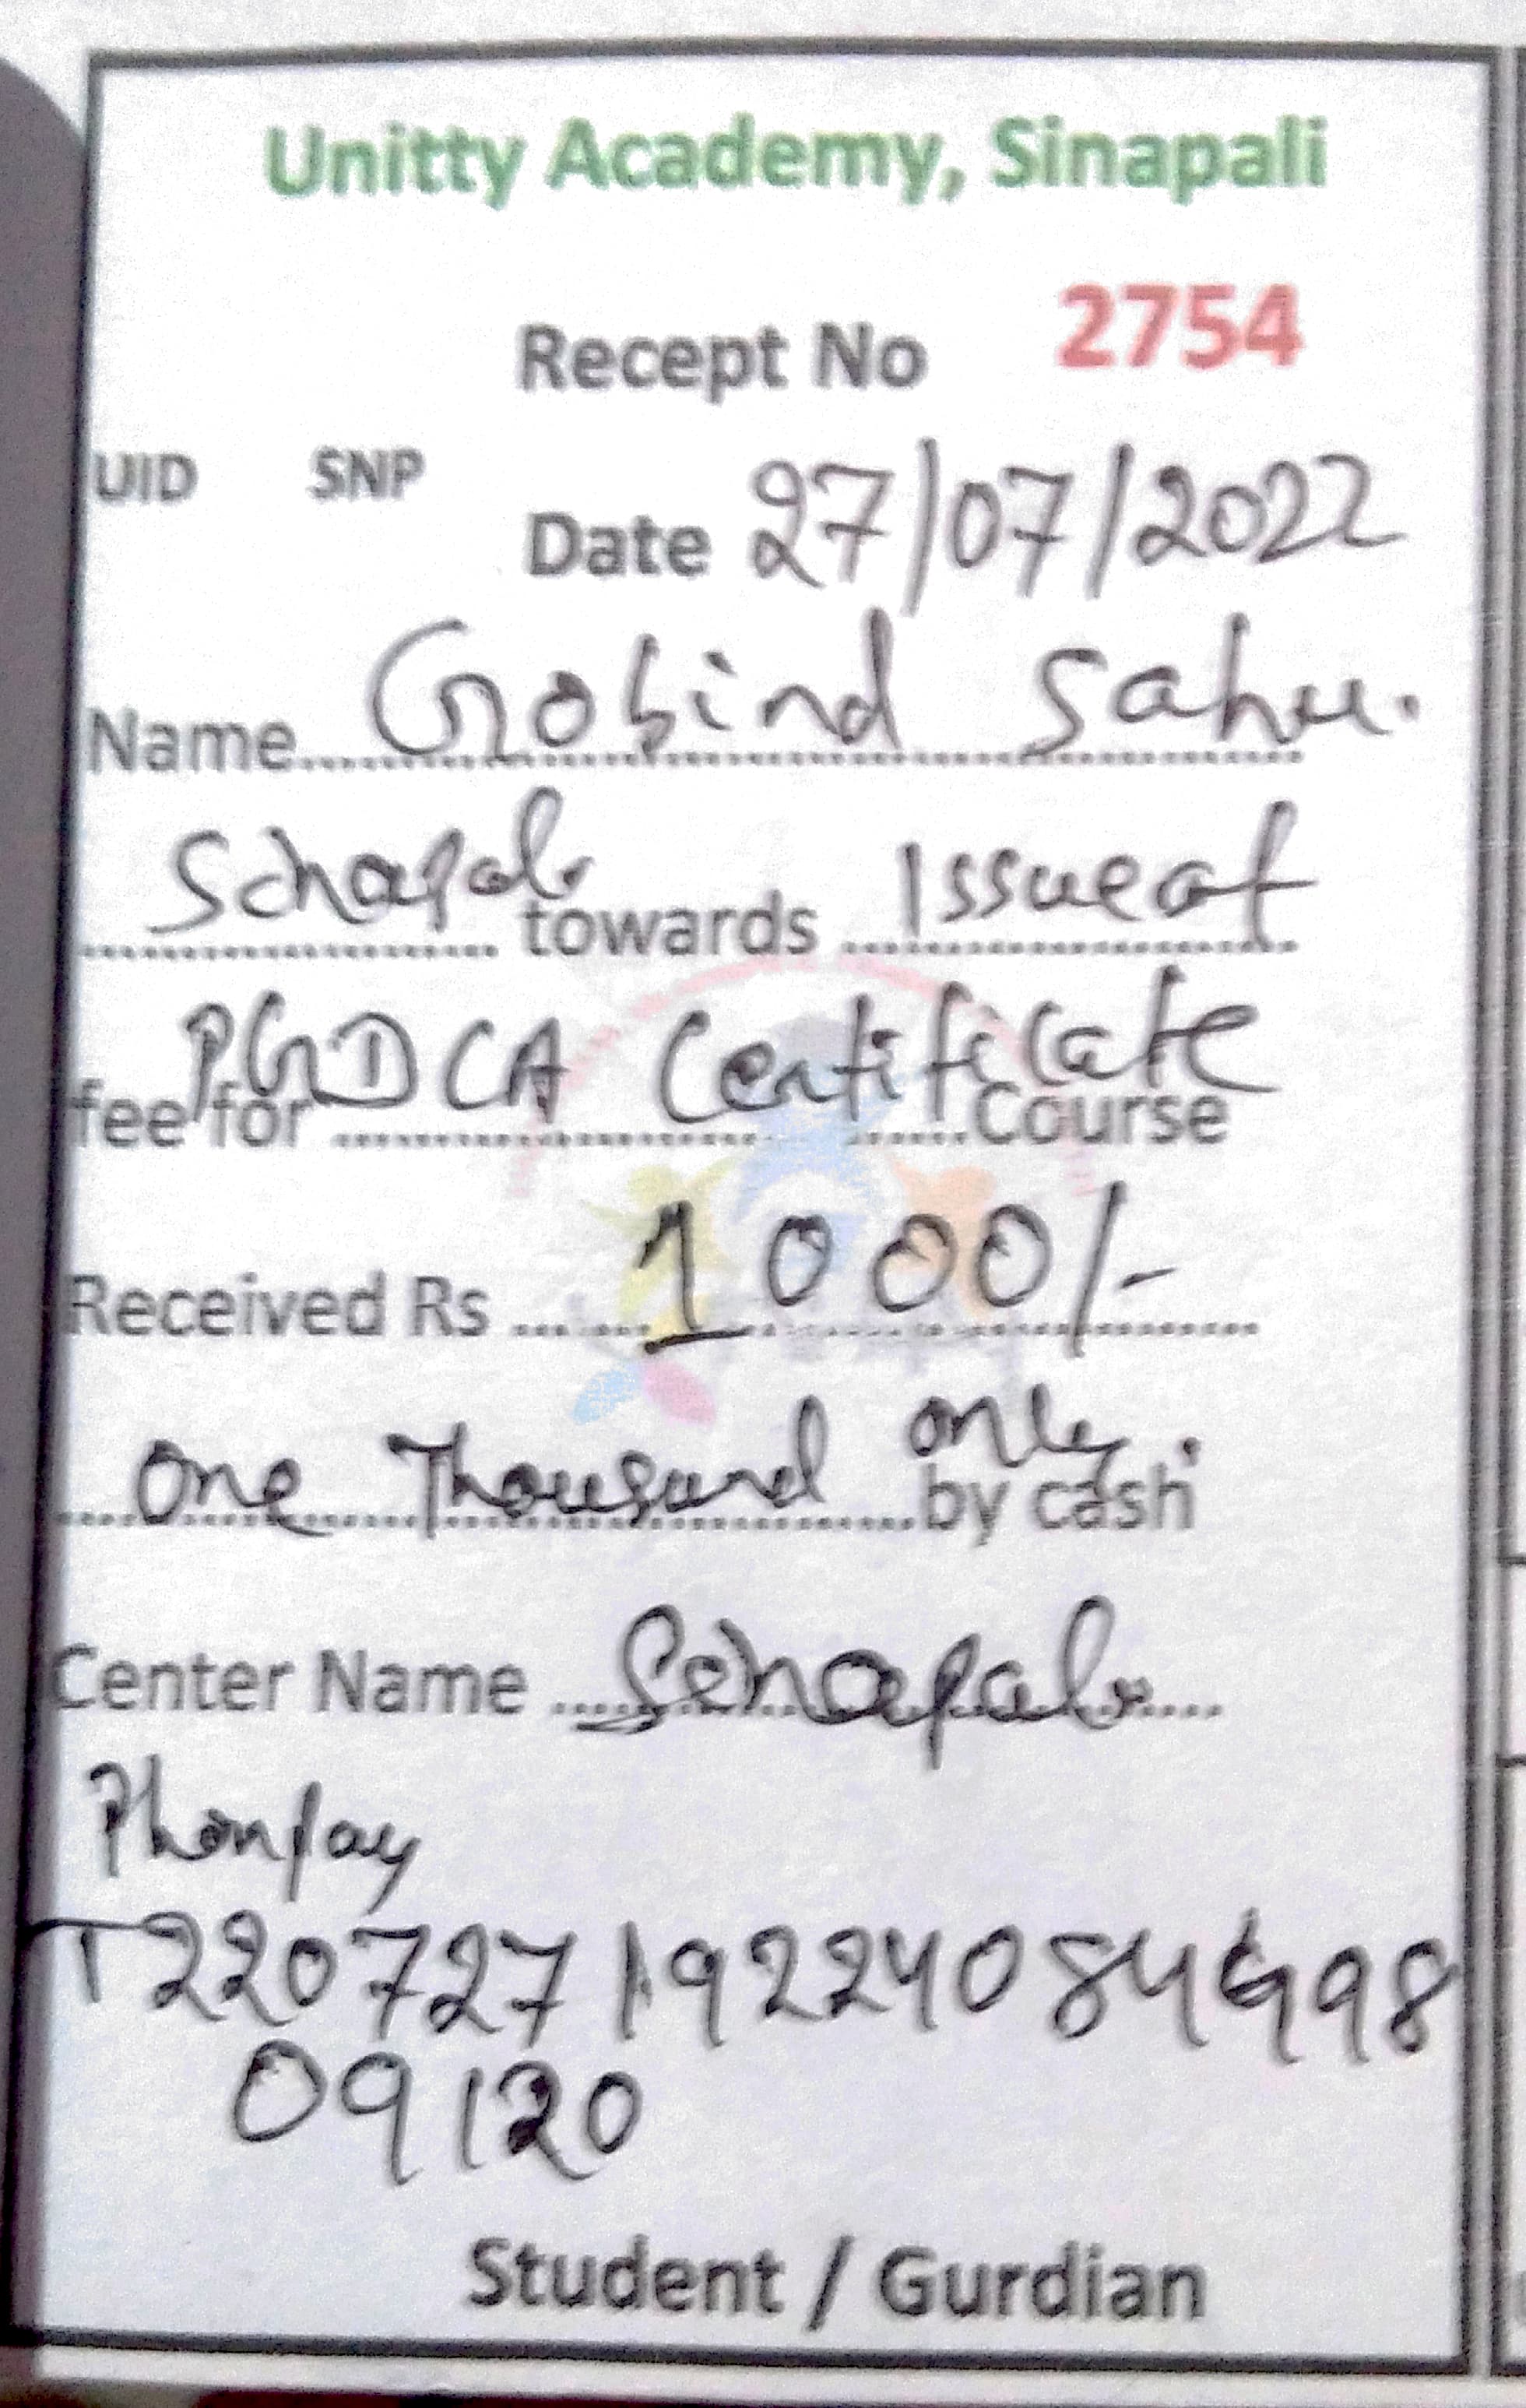 Unitty Academy, Sinapali
Recept No 2754
UID SNP
Date 27/07/2022
Name Gobind Sahu.
Sinapali towards Issue of
fee for PGDCA Certificate Course
Received Rs 1000/-
One Thousand only. by cash
Center Name Sinapali
Phonpay
T2207271922408444998
09120
Student / Gurdian